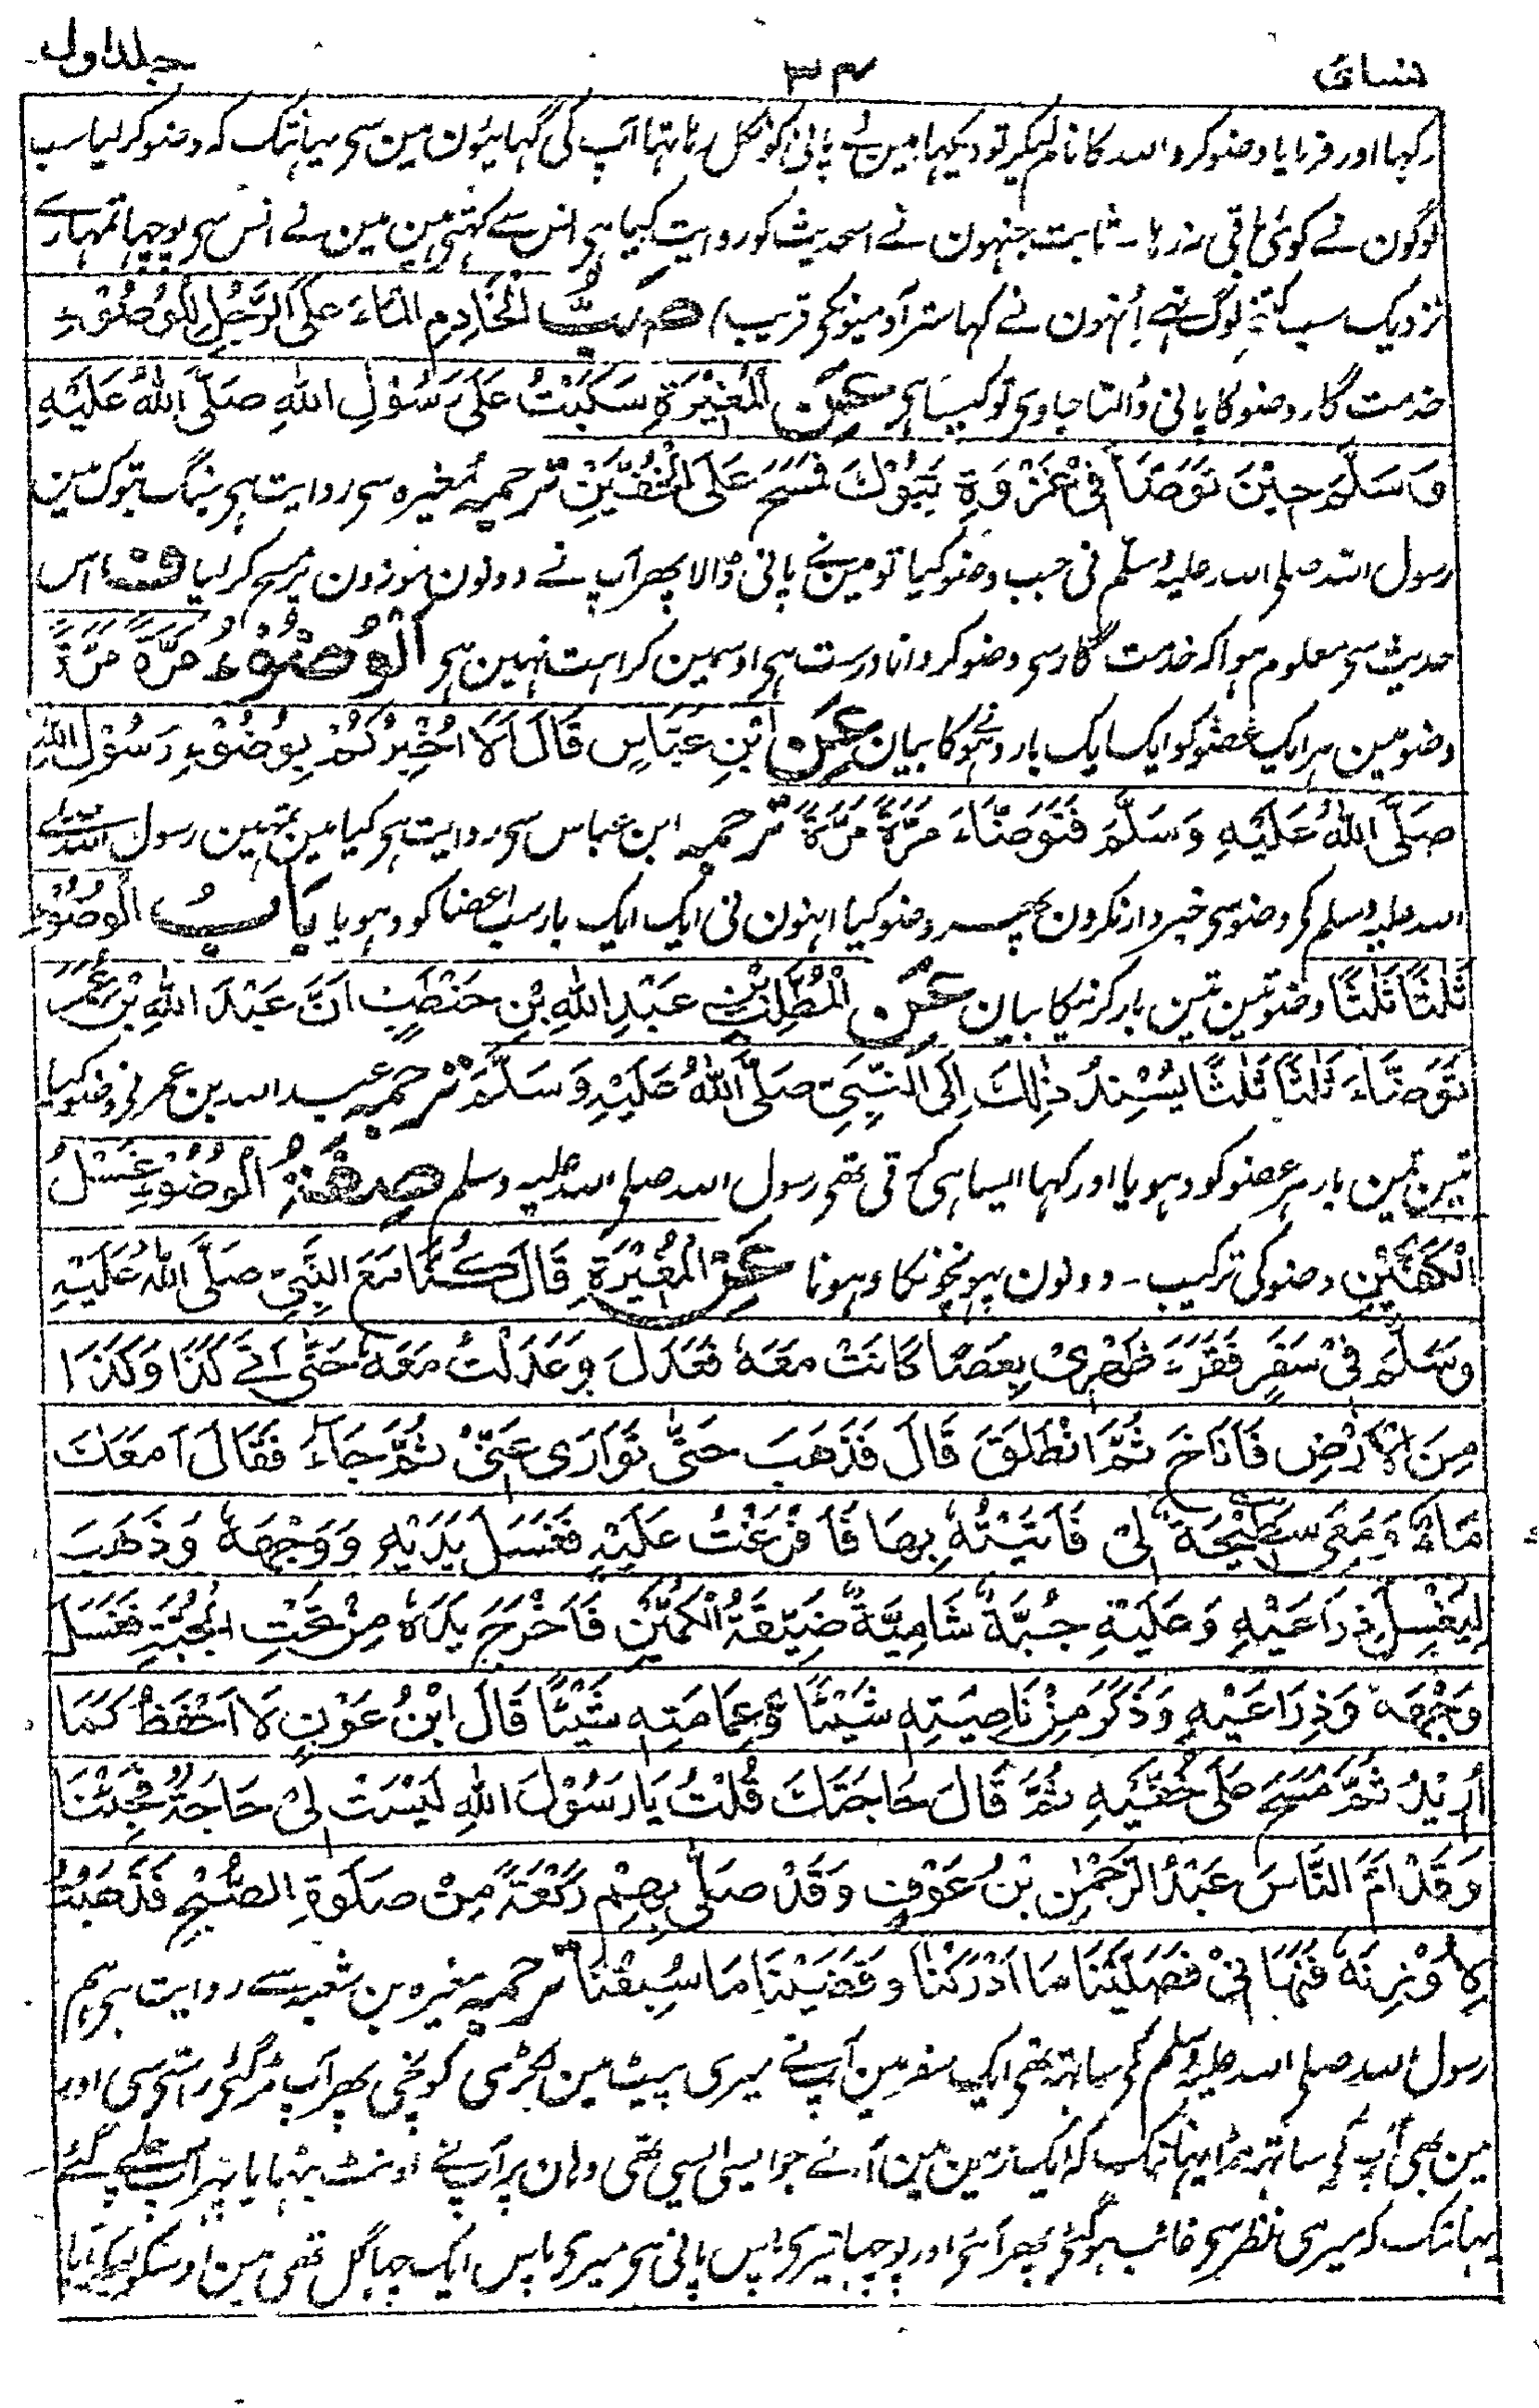 نسائی ۳۴ جلد اول
رکہا اور فرمایا وضو کرو اللہ کا نام لیکر تو دیکہا مین نے پانی کو نکل رہا تہا آپ کی گہائیون مین سی یہانتک کہ وضو کر لیا سب
لوگون نے کوئی باقی نہ رہا ۔ ثابت جنہون نے اسحدیث کو روایت کیا ہی انس سے کہتی ہین مین نے انس سی پوچہا تمہارے
نزدیک سب کتنے لوگ تہے اُنہون نے کہا ستر آدمیونکی قریب) صَبُّ الْخَادِمِ الْمَاءَ عَلَى الرَّجُلِ لِلْوُضُوْءِ
خدمت گار وضو کا پانی ڈالتا جاوی تو کیسا ہی عَنِ الْمُغِيْرَةِ سَكَبْتُ عَلَى رَسُوْلِ اللهِ صَلَّى اللهُ عَلَيْهِ
وَسَلَّمَ حِيْنَ تَوَضَّأَ فِيْ غَزْوَةِ تَبُوْكَ فَمَسَحَ عَلَى الْخُفَّيْنِ ترجمہ مُغیرہ سی روایت ہی جنگ تبوک مین
رسول اللہ صلی اللہ علیہ وسلم نی جب وضو کیا تو مین نے پانی ڈالا پھر آپ نے دونون موزون پر مسح کر لیا ف اس
حدیث سی معلوم ہوا کہ خدمت گار سی وضو کروانا درست ہی اوسمین کراہت نہین ہی اَلْوُضُوْءُ مَرَّةً مَرَّةً
وضو مین ہر ایک عضو کو ایک ایک بار دہونیکا بیان عَنِ ابْنِ عَبَّاسٍ قَالَ اَلَا اُخْبِرُكُمْ بِوُضُوْءِ رَسُوْلِ اللهِ
صَلَّى اللهُ عَلَيْهِ وَسَلَّمَ فَتَوَضَّاءَ مَرَّةً مَرَّةً ترجمہ ابن عباس سی روایت ہی کیا مین تمہین رسول اللہ صلے
اللہ علیہ وسلم کی وضو سی خبردار نکرون پھر وضو کیا انہون نی ایک ایک بار سب اعضا کو دہویا بَابُ الْوُضُوْءِ
ثَلٰثًا ثَلٰثًا وضو تین تین بار کرنیکا بیان عَنِ الْمُطَّلِبِ بْنِ عَبْدِ اللهِ بْنِ حَنْطَبٍ اَنَّ عَبْدَ اللهِ بْنَ عُمَرَ
تَوَضَّاءَ ثَلٰثًا ثَلٰثًا يُسْنِدُ ذٰلِكَ اِلَى النَّبِيِّ صَلَّى اللهُ عَلَيْهِ وَسَلَّمَ ترجمہ عبد اللہ بن عمر نی وضو کیا
تین تین بار ہر عضو کو دہویا اور کہا ایسا ہی کرتی تھی رسول اللہ صلی اللہ علیہ وسلم صِفَةُ الْوُضُوْءِ غَسْلُ
الْكَفَّيْنِ وضو کی ترکیب ۔ دونون پہونچونکا دہونا عَنِ الْمُغِيْرَةِ قَالَ كُنَّا مَعَ النَّبِيِّ صَلَّى اللهُ عَلَيْهِ
وَسَلَّمَ فِيْ سَفَرٍ فَقَرَعَ ظَهْرِيْ بِعَصًا كَانَتْ مَعَهُ فَعَدَلَ وَعَدَلْتُ مَعَهُ حَتّٰى اَتٰى كَذَا وَكَذَا
مِنَ الْاَرْضِ فَاَنَاخَ ثُمَّ انْطَلَقَ قَالَ فَذَهَبَ حَتّٰى تَوَارٰى عَنِّيْ ثُمَّ جَاءَ فَقَالَ اَمَعَكَ
مَاءٌ وَمَعِيَ سَطِيْحَةٌ لِيْ فَاَتَيْتُهُ بِهَا فَاَفْرَغْتُ عَلَيْهِ فَغَسَلَ يَدَيْهِ وَوَجْهَهُ وَذَهَبَ
لِيَغْسِلَ ذِرَاعَيْهِ وَعَلَيْهِ جُبَّةٌ شَامِيَّةٌ ضَيِّقَةُ الْكُمَّيْنِ فَاَخْرَجَ يَدَهُ مِنْ تَحْتِ الْجُبَّةِ فَغَسَلَ
وَجْهَهُ وَذِرَاعَيْهِ وَذَكَرَ مِنْ نَاصِيَتِهِ شَيْئًا وَعِمَامَتِهِ شَيْئًا قَالَ ابْنُ عَوْنٍ لَا اَحْفَظُ كَمَا
اُرِيْدُ ثُمَّ مَسَحَ عَلَى خُفَّيْهِ ثُمَّ قَالَ حَاجَتَكَ قُلْتُ يَا رَسُوْلَ اللهِ لَيْسَتْ لِيْ حَاجَةٌ فَجِئْنَا
وَقَدْ اَمَّ النَّاسَ عَبْدُ الرَّحْمٰنِ بْنُ عَوْفٍ وَقَدْ صَلّٰى بِهِمْ رَكْعَةً مِنْ صَلٰوةِ الصُّبْحِ فَذَهَبْتُ
لِاُوْذِنَهُ فَنَهَانِيْ فَصَلَّيْنَا مَا اَدْرَكْنَا وَقَضَيْنَا مَا سُبِقْنَا ترجمہ مغیرہ بن شعبہ سے روایت ہی ہم
رسول اللہ صلی اللہ علیہ وسلم کی ساتہ تھی ایک سفر مین آپنے میری پیٹ مین لکڑی کونچی پھر آپ مڑ گئی راستی سی اور
مین بھی آپ کی ساتہ مڑا یہانتک کہ ایک زمین مین آئے جو ایسی ایسی تھی وہان پر آپنے اونٹ بٹہایا پہر آپ چلے گئے
یہانتک کہ میری نظر سی غائب ہوگئی پھر آئی اور پوچہا تیری پاس پانی ہی میری پاس ایک چہاگل تھی مین اوسکو لیکر آیا